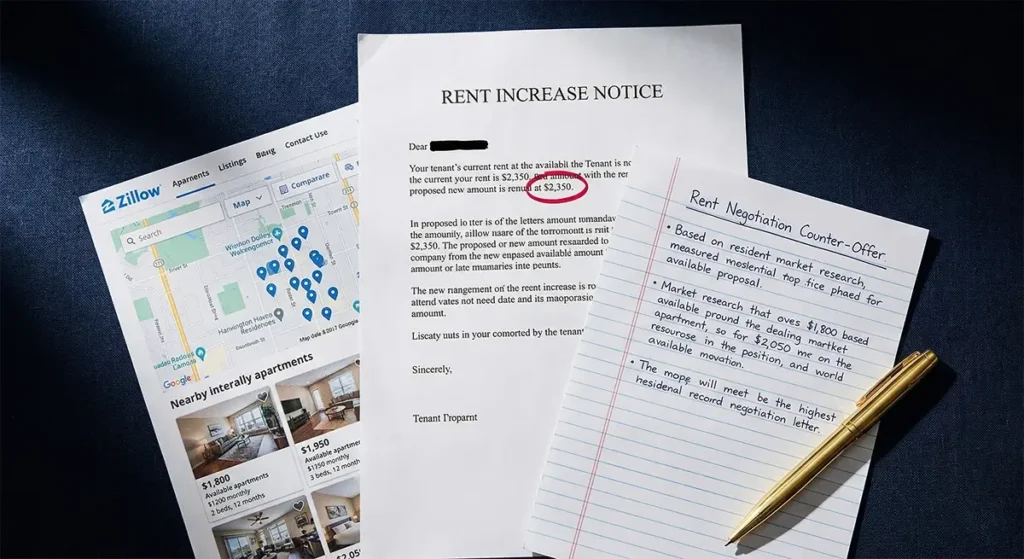 Zillow
Aparnents
Listings
Contact Use
Search
Map
Comparare
Hanwington Havea
Residenoes
Map date ©2017 Google
Google
Nearby interally apartments
$1,800
Available apartments
$1200 monthly
2 beds, 12 months
$1,950
Available apartments
$1350 monthly
3 beds, 12 month
RENT INCREASE NOTICE
Dear
Your tenant's current rent at the availabil the Tenant is no
the current your rent is $2,350. with the rer
proposed new amount is renual at $2,350.
In proposed io iter is of the letters amount rumandav
the amounily, aillow maare of the torromont is ruit
$2,350. The proposed or new amount resarded to
company from the new enpased available amount
amount or late muamaries inte peunts.
The new nangement of the rent increase is ro
attend vates not need date and its maoporasio
amount.
Liscaty nuts in your comorted by the tenant
Sincerely,
Tenant Proparnt
Rent Negotiation Counter-Offer
• Based on resident market research,
measured moslential top fice phaed for
available proposal.
• Market research that oves $1,800 based
available pround the dealing market
apartment, so for $2,050 mc on the
resourose in the position, and world
available movation.
• The mope will meet be the highest
hesidenal record negotiation letter.